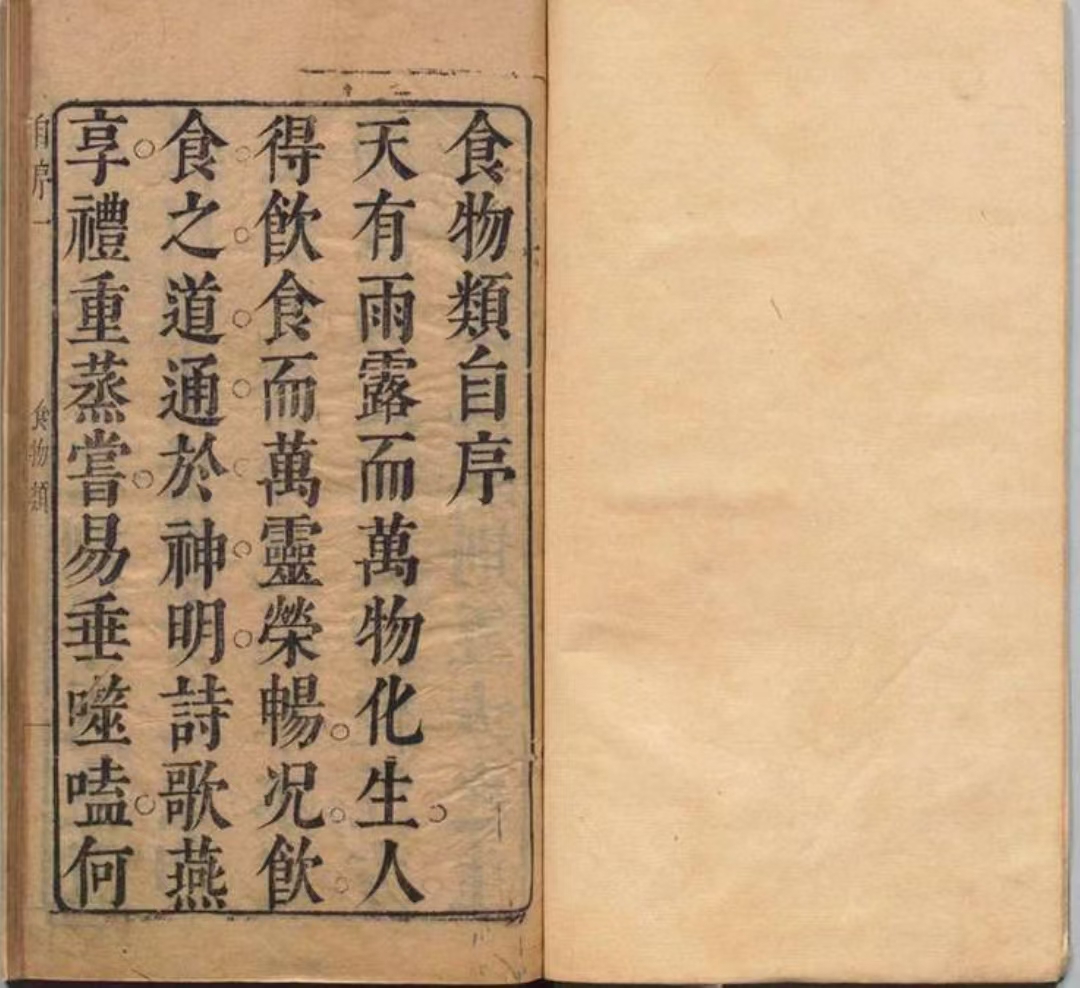 食物類自序
天有雨露而萬物化生人
得飲食而萬靈榮暢况飲
食之道通於神明詩歌燕
享禮重蒸嘗易垂噬嗑何
自序一
食物類